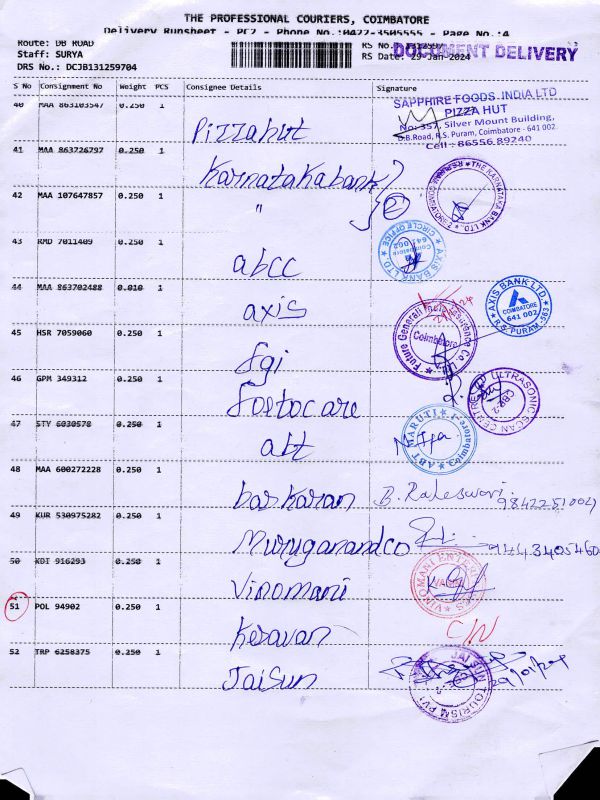 THE PROFESSIONAL COURIERS, COIMBATORE
Delivery Runsheet - PC2 - Phone No.:0422-3505555 - Page No.:4
Route: DB ROAD
Staff: SURYA
DRS No.: DCJB131259704
RS No.: 1312597
DOCUMENT DELIVERY
RS Date: 29-Jan-2024
S No Consignment No Weight PCS Consignee Details Signature
40 MAA 863103547 0.250 1 Pizzahut
SAPPHIRE FOODS INDIA LTD
PIZZA HUT
No: 357, Silver Mount Building,
D.B.Road, R.S. Puram, Coimbatore - 641 002.
Cell : 86556 89240
41 MAA 863726797 0.250 1 Karnatakabank
THE KARNATAKA BANK LTD.
42 MAA 107647857 0.250 1 "
2
43 RMD 7011409 0.250 1 abcc
AXIS BANK LTD. CIRCLE OFFICE
Coimbatore
641 002
44 MAA 863702488 0.010 1 axis
AXIS BANK LTD.
COIMBATORE
641 002
R.S. PURAM
45 HSR 7059060 0.250 1 fgi
Future Generali India Insurance Co. Ltd.
Coimbatore
46 GPM 349312 0.250 1 foetocare
ULTRASONIC SCAN CENTRE
CBE-2
47 STY 6030578 0.250 1 abt
ABT MARUTI
Coimbatore-1
48 MAA 600272228 0.250 1 baskaran
B. Rajeswari.
49 KUR 530975282 0.250 1 Muruganandco
50 KDI 916293 0.250 1 Vinomani
VINOMANI ENTERPRISES
51 POL 94902 0.250 1 Kesavan
C/N
52 TRP 6258375 0.250 1 JaiSun
JAI SUN TOURISM PVT
29/01/24